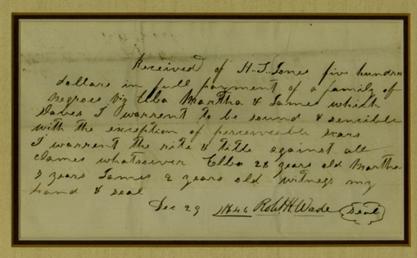 Received of H. T. Jones five hundred
dollars in full payment of a family of
Negroes Viz Elba Martha & James which
Slaves I warrent to be sound & sencible
with the exception of perceiveable scars
I warrent the rite & title against all
clames whatsoever Elba 28 years old Martha
8 years James 2 years old witness my
hand & seal
Dec 29 1846 Robt H Wade Seal